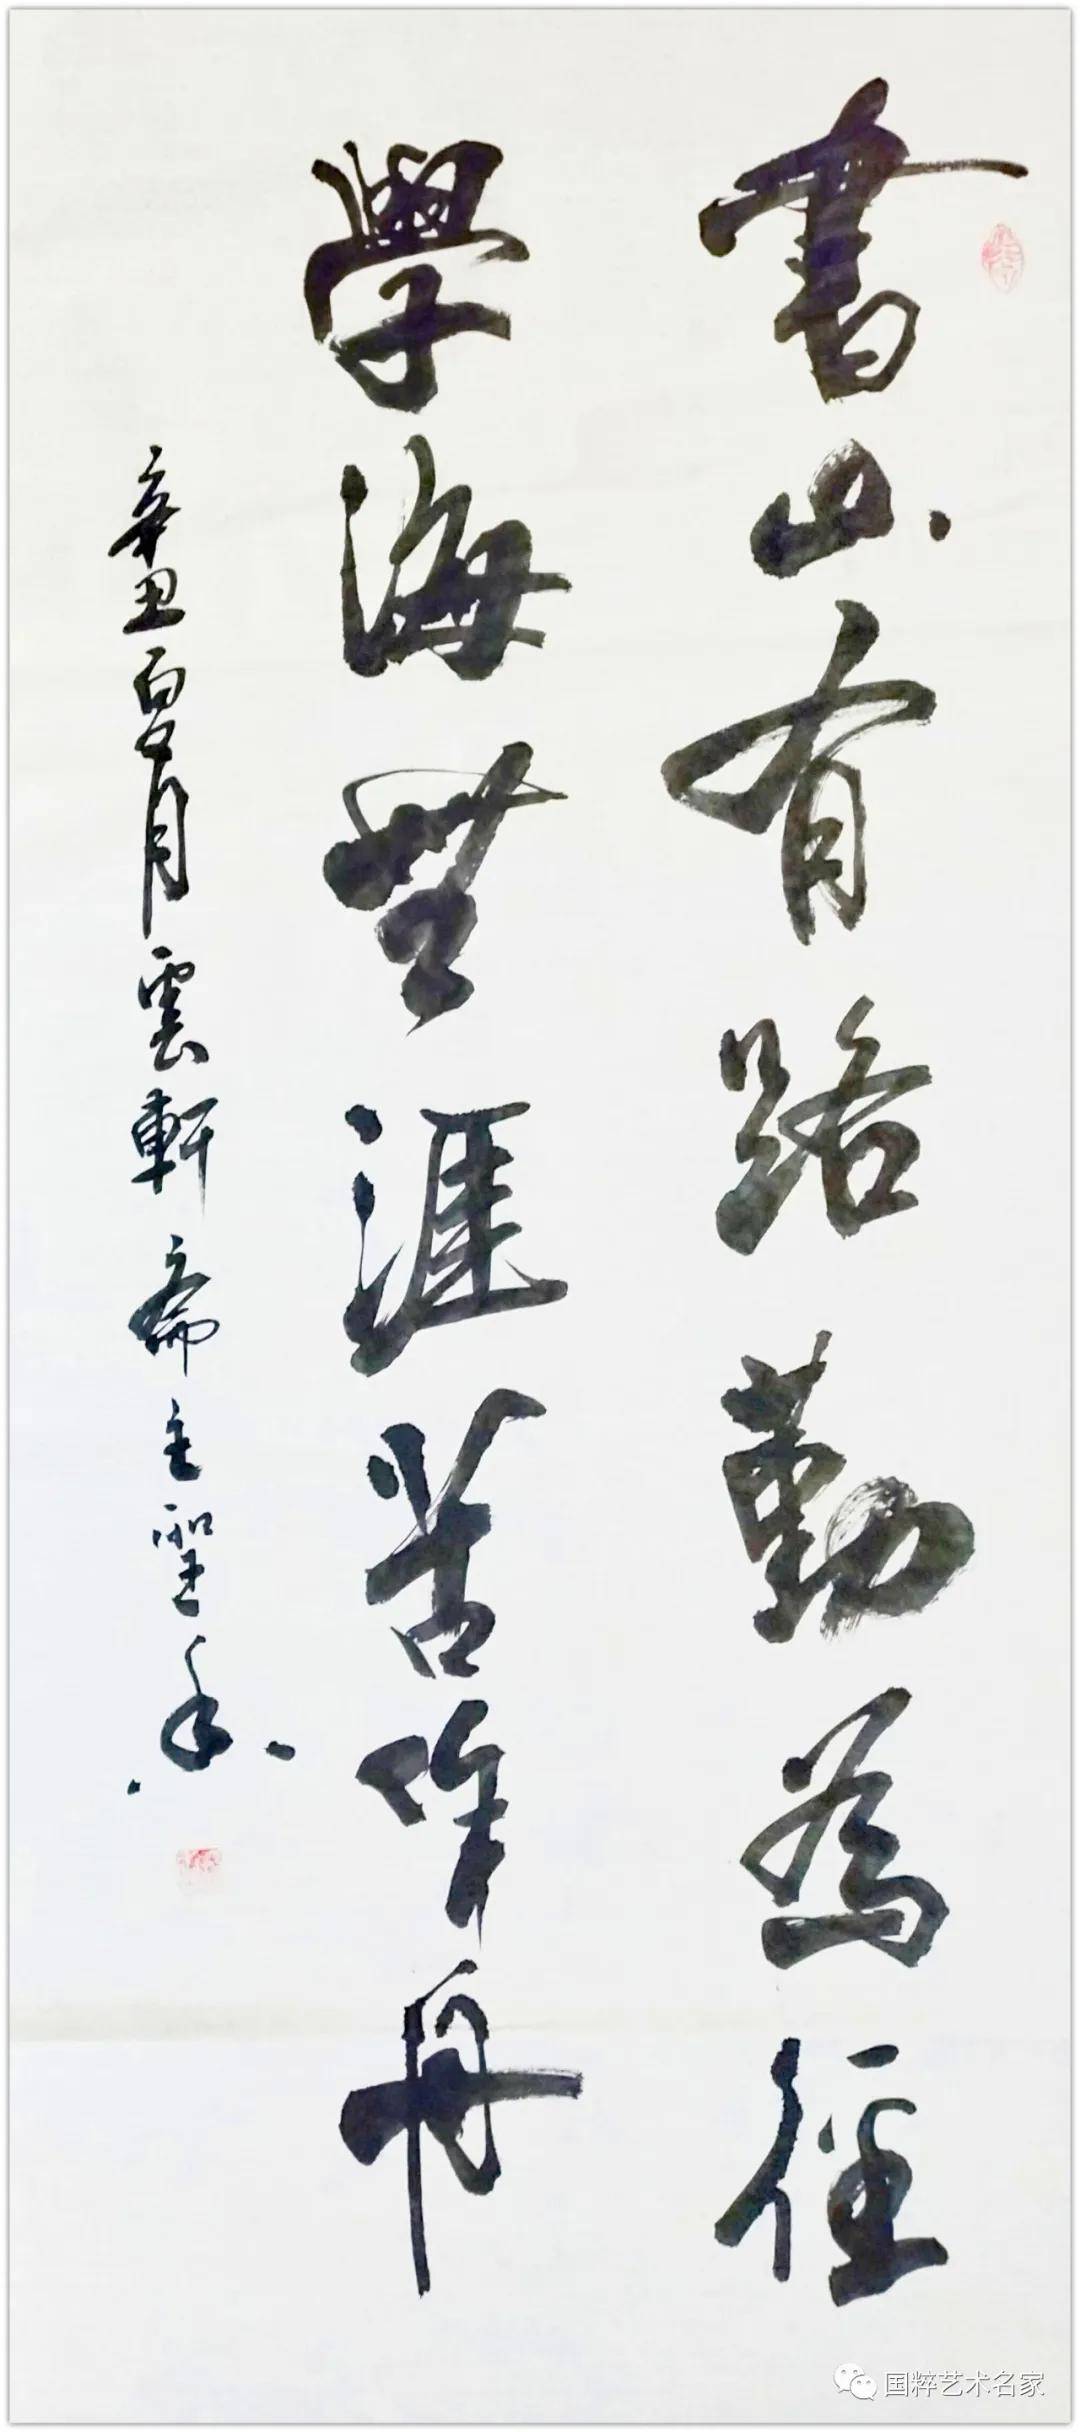 書山有路勤為徑
學海無涯苦作舟
辛丑夏月雲軒齋主聖手
国粹艺术名家